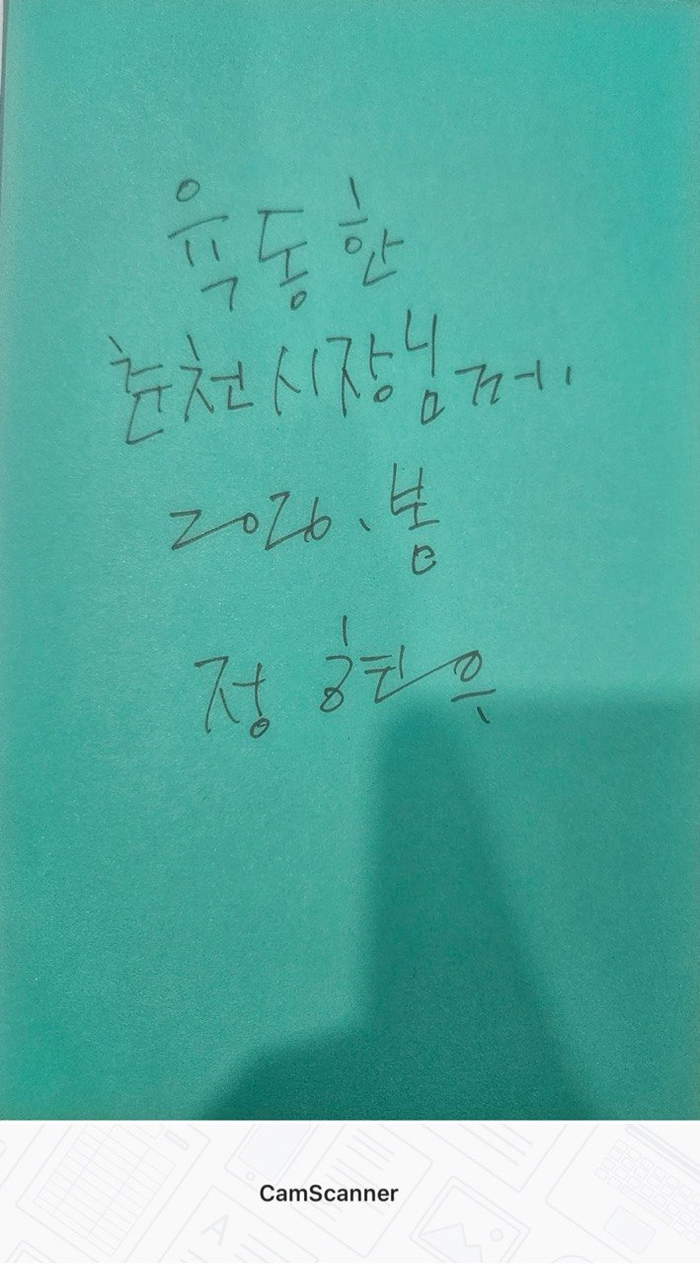 육동한
춘천시장님께
2026. 봄
정현우
CamScanner